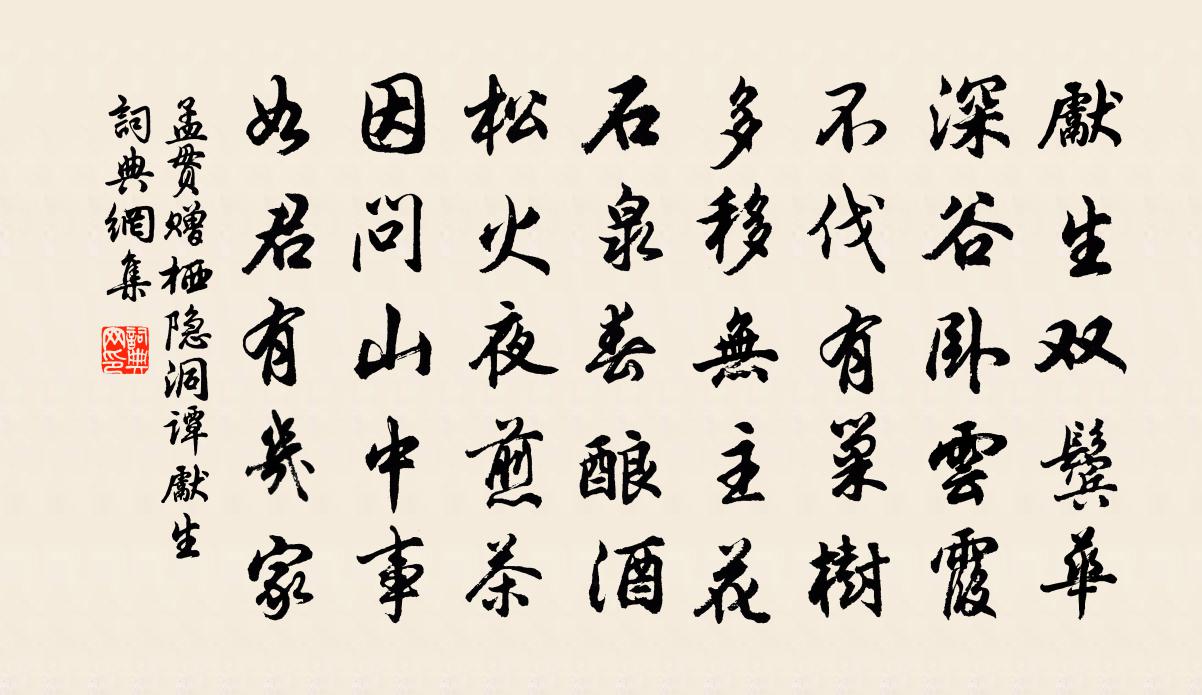 獻生双鬓華
深谷卧雲霞
不伐有巢樹
多移無主花
石泉春酿酒
松火夜煎茶
因问山中事
如君有幾家
孟贯赠栖隐洞谭獻生
詞典網集
詞典網印